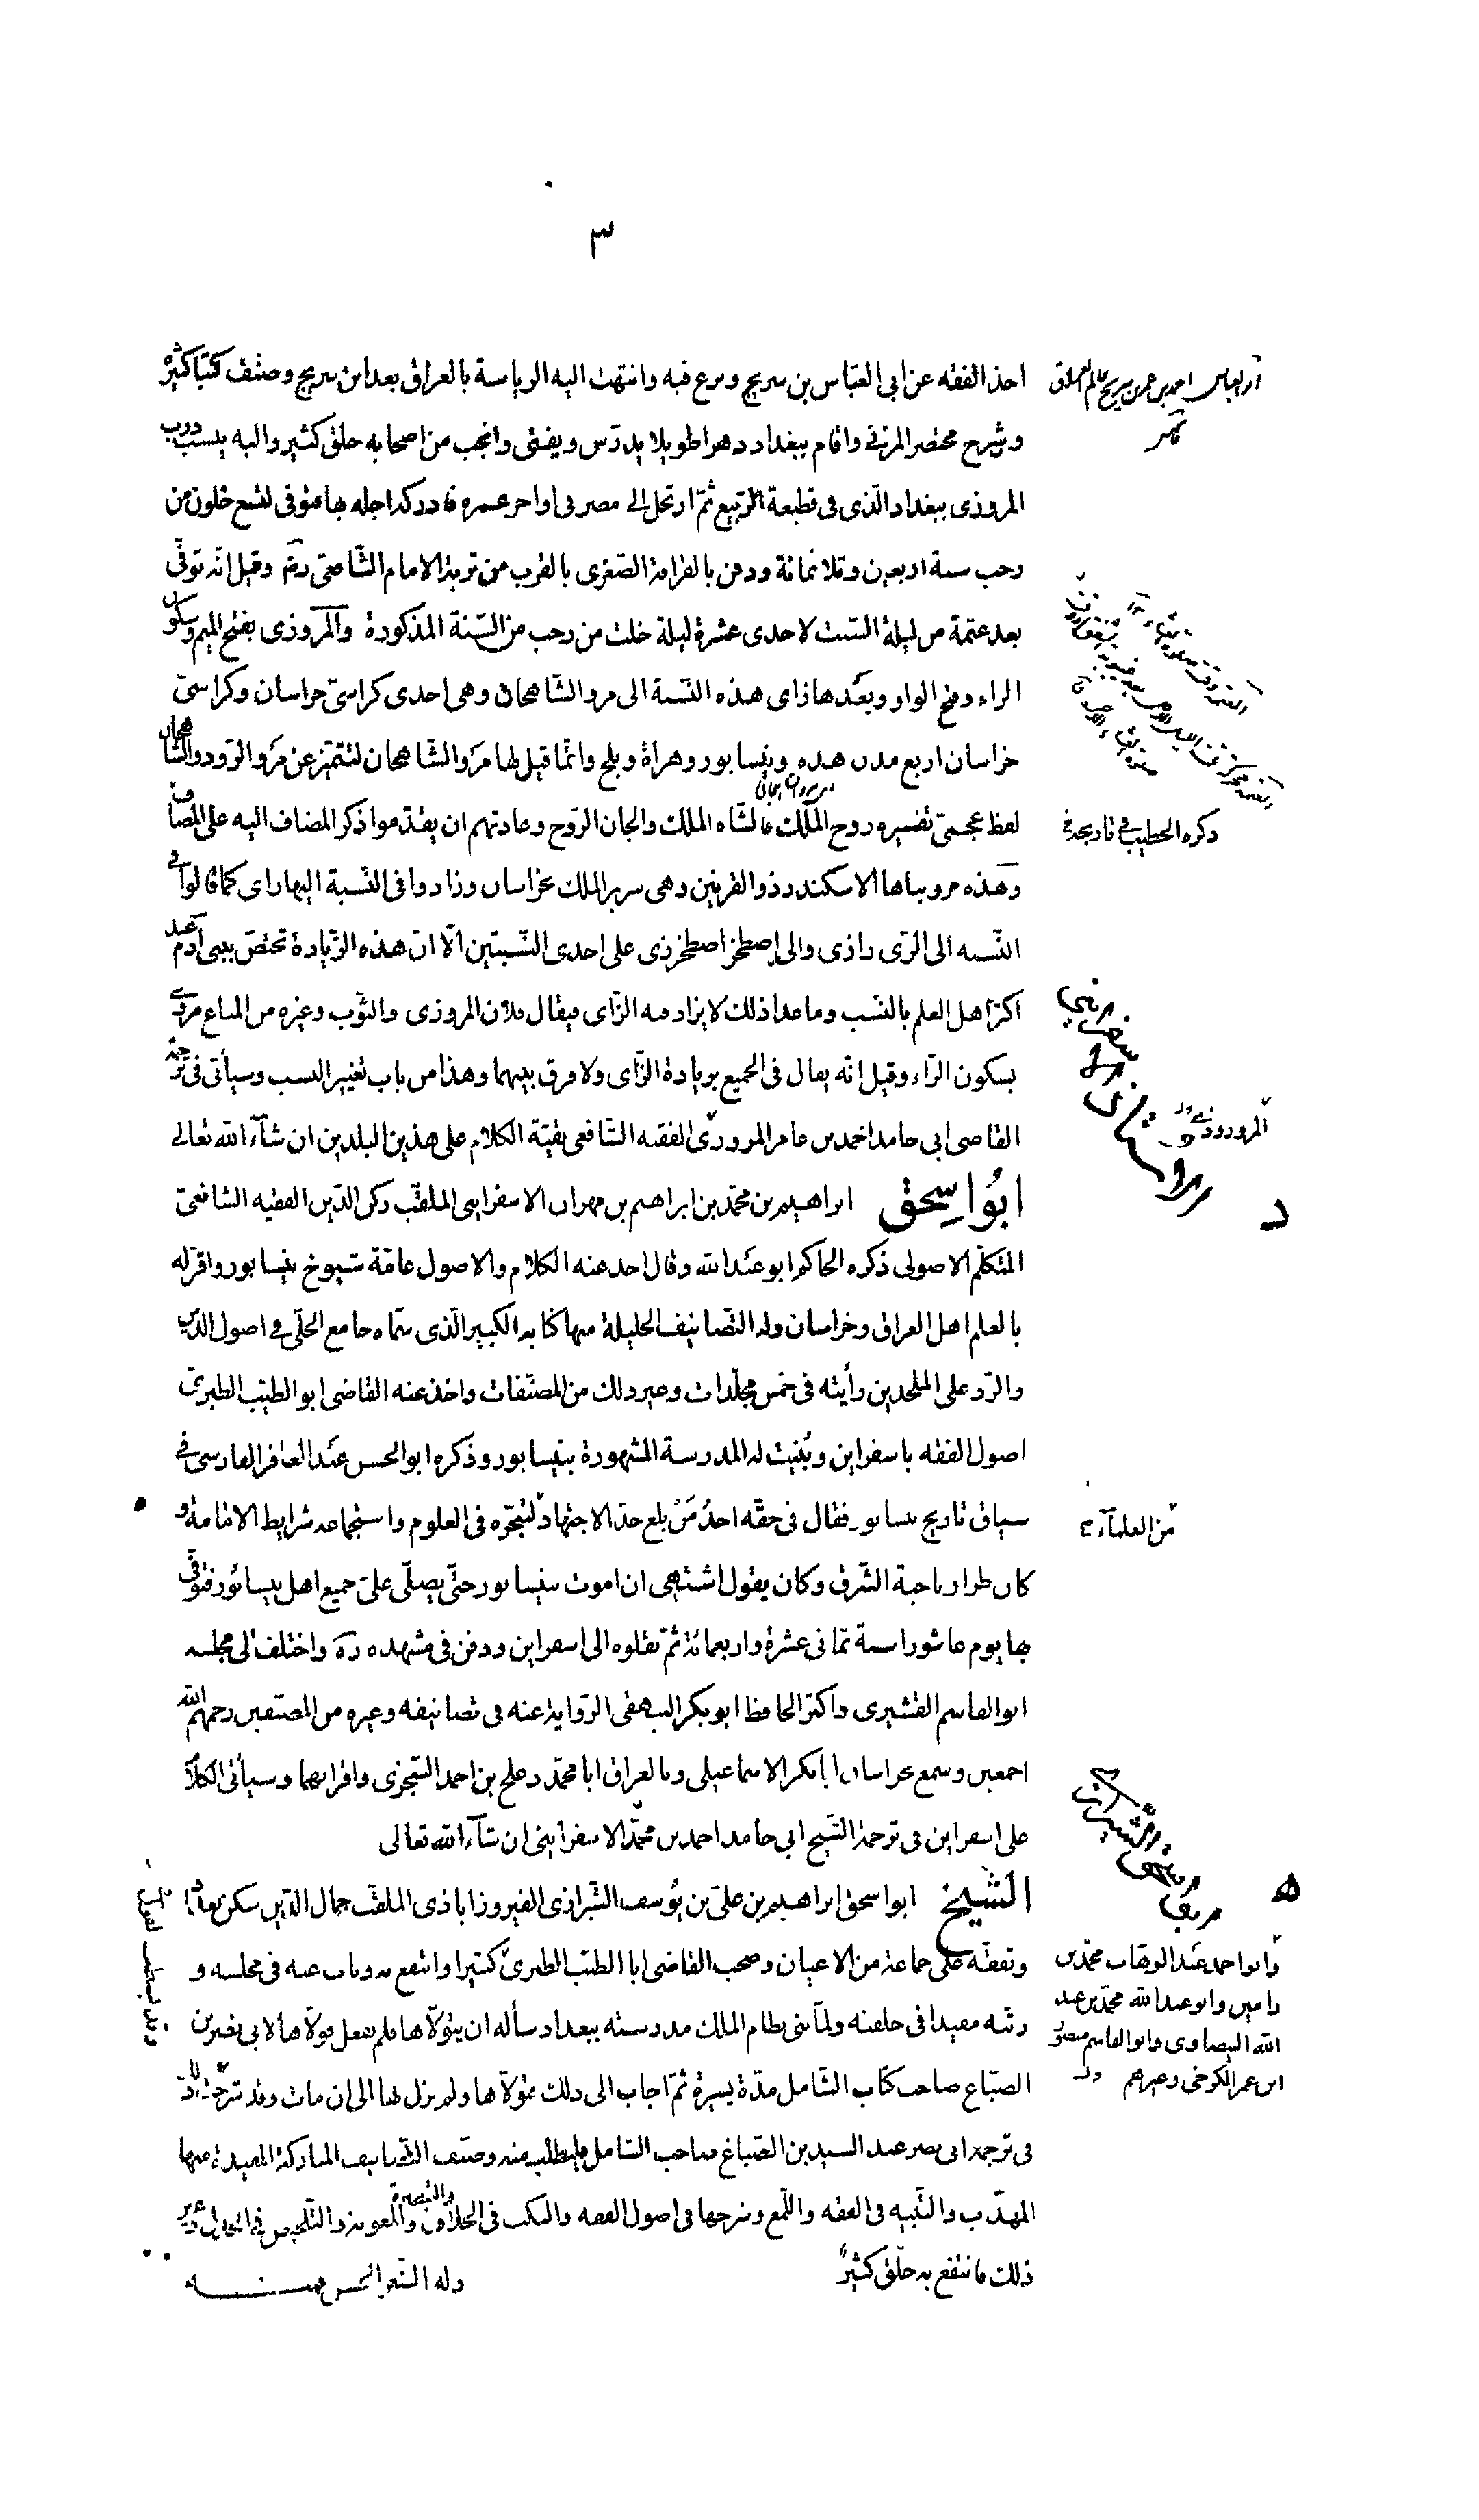 ٣
اخذ الفقه عن ابي العبّاس بن سريج وبرع فيه وانتهت اليه الرياسة بالعراق بعد ابن سريج وصنّف كتبا كثيرة
وشرح مختصر المزني واقام ببغداد دهرا طويلا يدرّس ويفتى وانجب من اصحابه خلق كثير واليه ينسب درب
المروزى ببغداد الّذى فى قطيعة الرّبيع ثمّ ارتحل الى مصر فى اواخر عمره فادركه اجله بها فتوفى لتسع خلون من
رجب سنة اربعين وثلاثمائة ودفن بالقرافة الصّغرى بالقرب من تربة الامام الشّافعى رحمه وقيل انّه توفّى
بعد عتمة من ليلة السّبت لاحدى عشرة ليلة خلت من رجب من السّنة المذكورة والمَروزى بفتح الميم وسكون
الراء وفتح الواو وبعدها زاى هذه النّسبة الى مرو الشّاهجان وهى احدى كراسىّ خراسان وكراسىّ
خراسان اربع مدن هذه ونيسابور وهراة وبلخ وانّما قيل لها مرو الشّاهجان لتتميز عن مرو الرّوذ والشّاهجان
لفظ عجمىّ تفسيره روح الملك فالشّاه الملك والجان الرّوح وعادتهم ان يقدّموا ذكر المضاف اليه على المضاف
وهذه مرو بناها الاسكندر ذو القرنين وهى سرير الملك بخراسان وزادوا فى النّسبة اليها زاى كما قالوا فى
النّسبه الى الرّى رازى والى إصطخر اصطخرزى على احدى النّسبتين الّا انّ هذه الزّيادة تختصّ ببنى آدم عند
اكثر اهل العلم بالنّسب وما عدا ذلك لا يزاد فيه الزّاى فيقال فلان المروزى والثّوب وغيره من المتاع مروى
بسكون الرّاء وقيل انّه يقال فى الجميع بزيادة الزّاى ولا فرق بينهما وهذا من باب تغيير النسب وسيأتى فى ترجمة
القاضى ابى حامد احمد بن عامر المروروذىّ الفقيه الشافعى بقيّة الكلام على هذين البلدين ان شآء الله تعالى
ابُو اسِحق ابراهيم بن محمّد بن ابراهيم بن مهران الاسفراينى الملقّب ركن الدّين الفقيه الشافعىّ
المتكلّم الاصولى ذكره الحاكم ابو عبد الله وقال اخذ عنه الكلام والاصول عامّة شيوخ نيسابور واقرّ له
بالعلم اهل العراق وخراسان وله التّصانيف الجليلة منها كتابه الكبير الّذى سمّاه جامع الحلىّ فى اصول الدّين
والرّد على الملحدين رأيته فى خمس مجلّدات وغير ذلك من المصنّفات واخذ عنه القاضى ابو الطيّب الطبرىّ
اصول الفقه باسفراين وبُنيت له المدرسة المشهورة بنيسابور وذكره ابو الحسن عبد الغافر الفارسى فى
سياق تاريخ نيسابور فقال فى حقّه احدُ مَن بلغ حدّ الاجتهاد لتبحّره فى العلوم واستجماعه شرايط الامامة و
كان طراز ناحية الشّرق وكان يقول اشتهى ان اموت بنيسابور حتّى يصلّى علىّ جميع اهل نيسابُور فتوفّى
بها يوم عاشورا سنة ثمانى عشرة واربعمائة ثمّ نقلوه الى اسفراين ودفن فى مشهده رَه واختلف الى مجلسه
ابو القاسم القشيرى واكثر الحافظ ابو بكر البيهقى الرّواية عنه فى تصانيفه وغيره من المصنّفين رحمهم الله
اجمعين وسمع بخراسان ابا بكر الاسماعيلى وبالعراق ابا محمّد دعلج بن احمد السّجزى واقرانهما وسيأتى الكلا
على اسفراين فى ترجمة الشّيخ ابى حامد احمد بن محمّد الاسفراينى ان شآء الله تعالى
الشّيخ ابو اسحق ابراهيم بن على بن يُوسف الشّيرازى الفيروزاباذى الملقّب جمال الدّين سكن بغداد
وتفقّه على جماعة من الاعيان وصحب القاضى ابا الطيّب الطبرىّ كثيرا وانتفع به وناب عنه فى مجلسه و
رتّبه معيدا فى حلقته ولمّا بنى نظام الملك مدرسته ببغداد سأله ان يتولّاها فلم يفعل فولّاها لابى نصر بن
الصّباغ صاحب كتاب الشّامل مدّة يسيرة ثمّ اجاب الى ذلك فتولّاها ولم يزل بها الى ان مات وقد
فى ترجمة ابى نصر عبد السيد بن الصّباغ صاحب الشامل فليطلب منه وصنّف التّصانيف المباركة المفيدة منها
المهذّب والتّنبيه فى الفقه واللّمع وشرحها فى اصول الفقه والنّكت فى الخلاف والتبصرة والمعونة والتّلخيص فى الجدل وغير
ذلك فانتفع به خلق كثيرٌ
وله الشّعر الحسن فمنه
ابو العباس احمد بن عمر بن سريج عالم العراق
ذكره الخطيب فى تاريخه
المروروذى
من العلمآء
وابو احمد عبد الوهّاب محمّد بن
رامين وابو عبد الله محمّد بن عبد
الله البيضاوى وابو القاسم منصور
ابن عمر الكرخى وغيرهم
د
ه